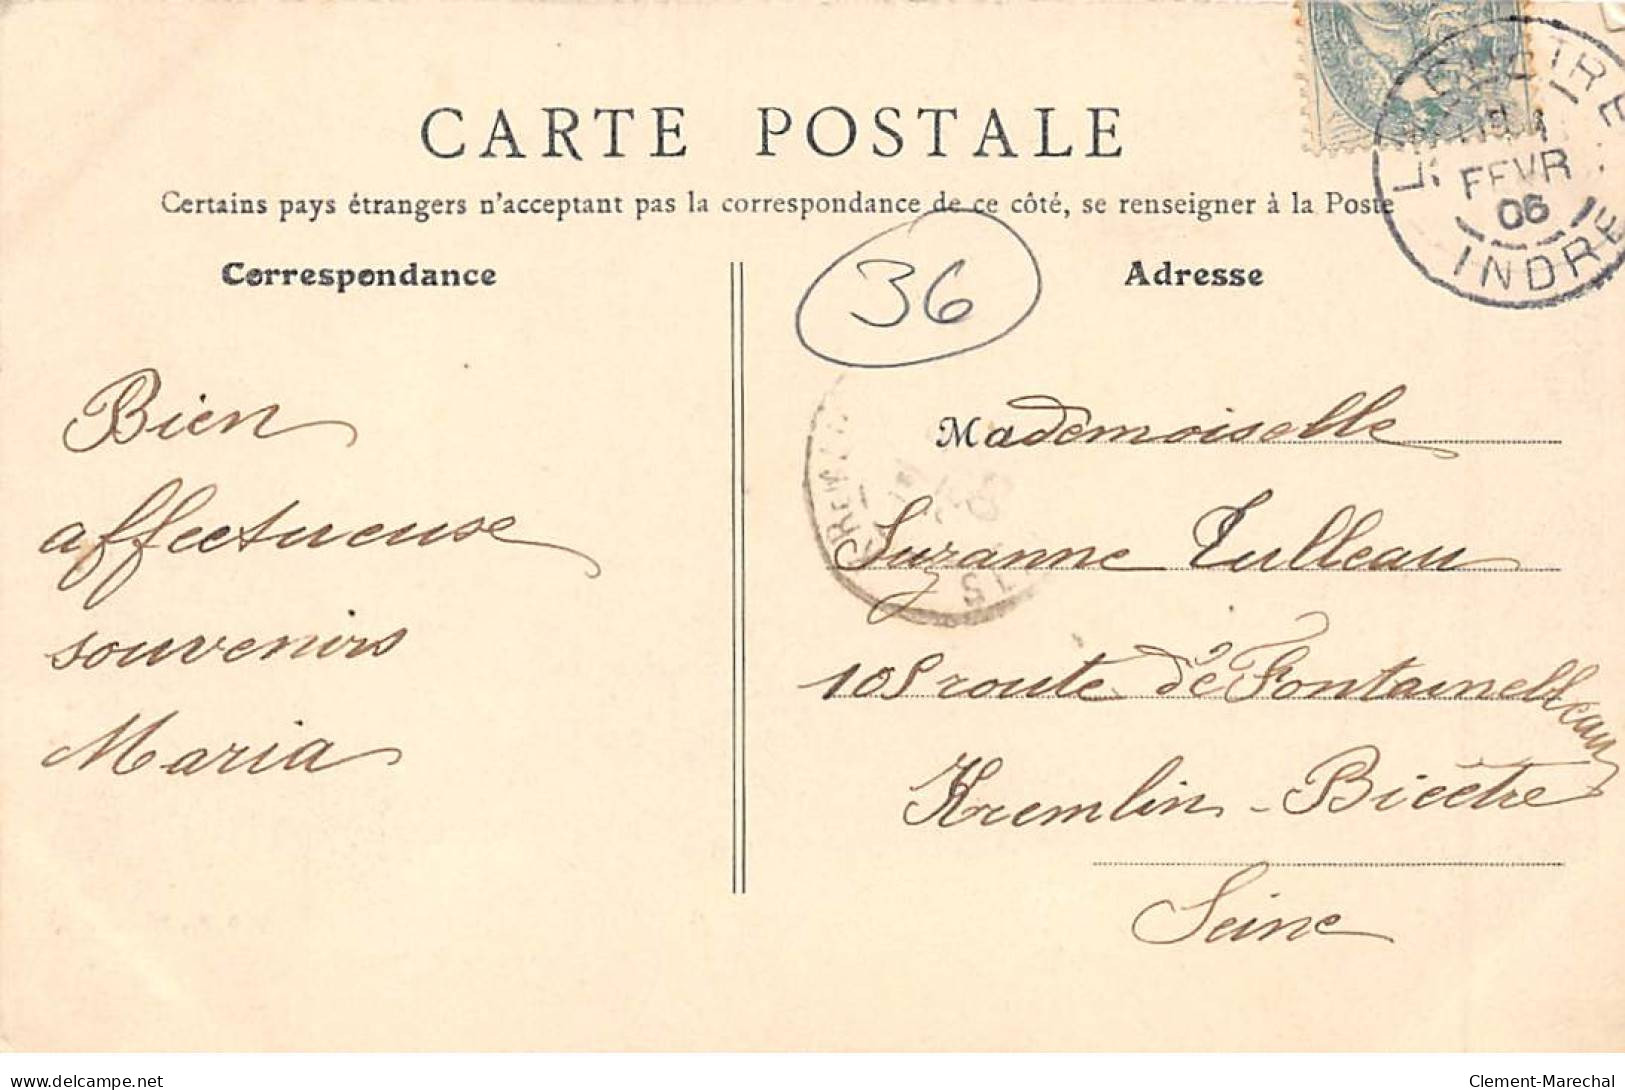 CARTE POSTALE
Certains pays étrangers n'acceptent pas la correspondance de ce côté, se renseigner à la Poste
Correspondance
Adresse
36
FEVR
06
INDRE
Bien
affectueuse
souvenirs
Maria
Mademoiselle
Suzanne Tulleau
105 route de Fontainebleau
Kremlin-Bicêtre
Seine
delcampe.net
Clement-Marechal